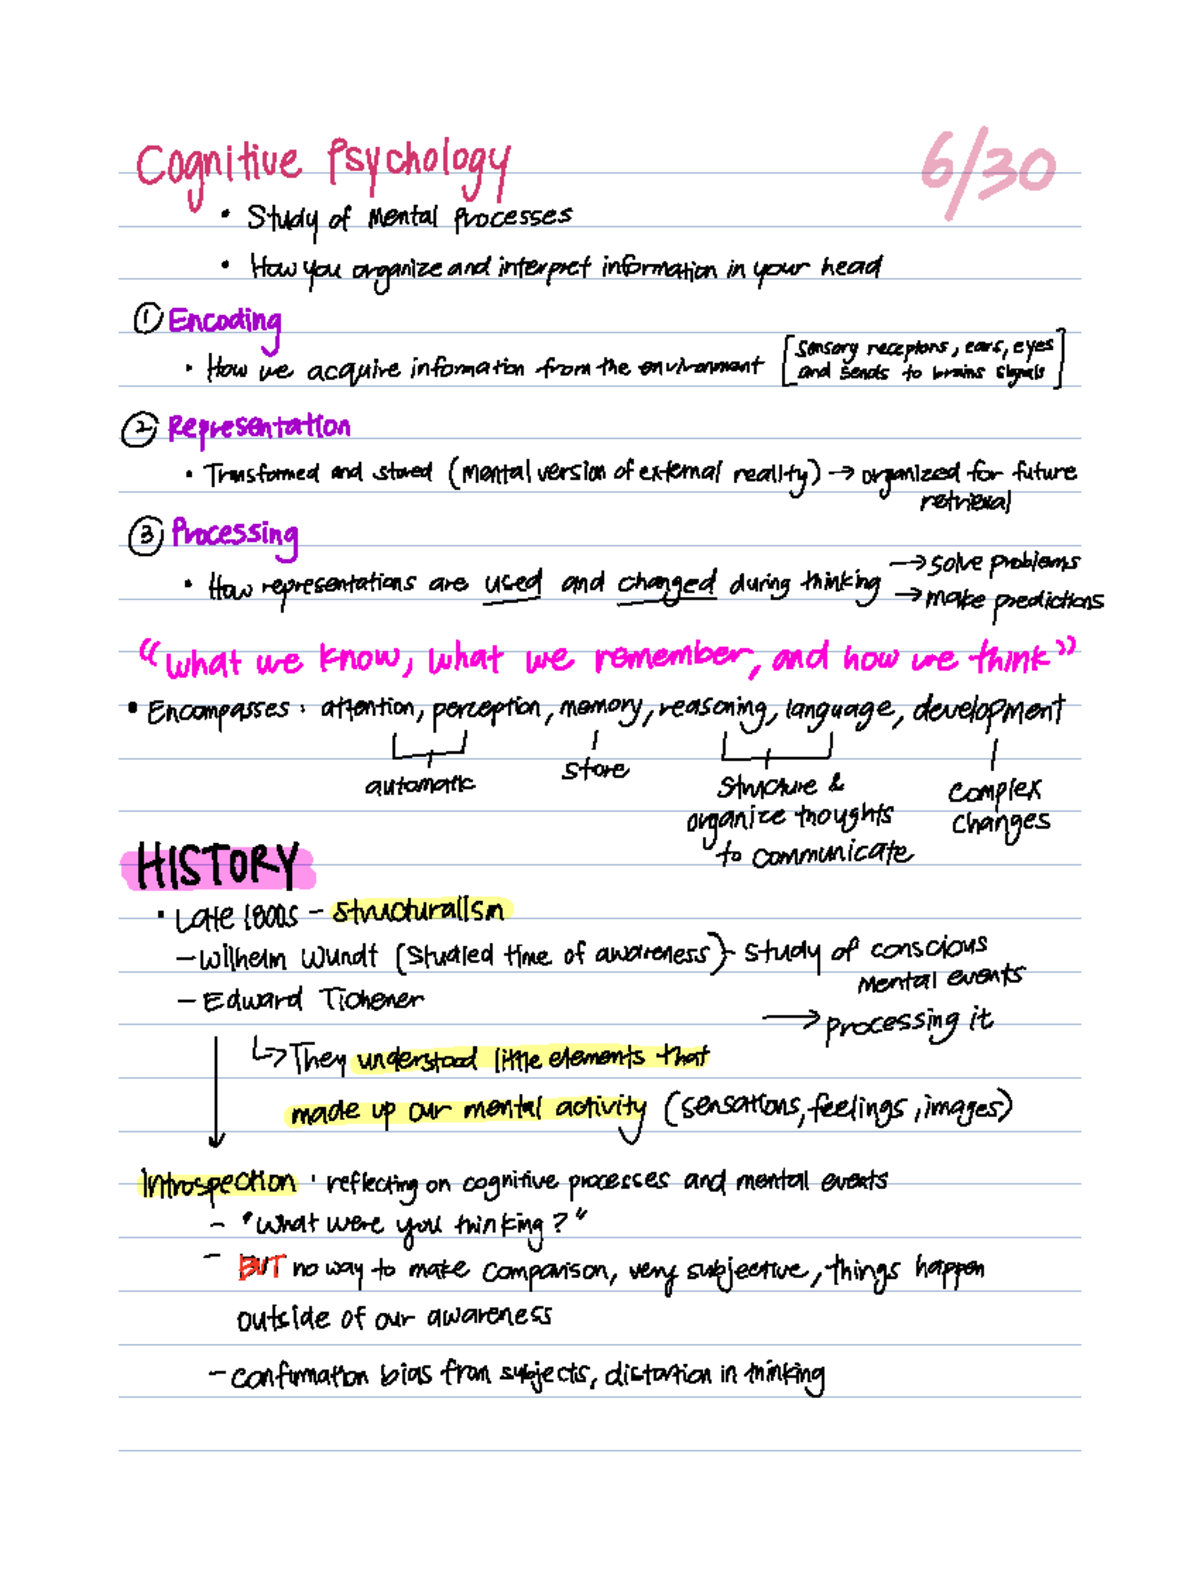 Cognitive Psychology 6/30
• Study of Mental Processes
• How you organize and interpret information in your head
① Encoding
• How we acquire information from the environment [sensory receptors, ears, eyes
and sends to brains signals]
② Representation
• Transformed and stored (mental version of external reality) → organized for future
retrieval
③ Processing
• How representations are used and changed during thinking → solve problems
→ make predictions
"what we know, what we remember, and how we think"
• Encompasses: attention, perception, memory, reasoning, language, development
automatic store structure & complex
organize thoughts changes
to communicate
HISTORY
• Late 1800s – structuralism
– Wilhelm Wundt (studied time of awareness) – study of conscious
mental events
– Edward Tichener → processing it
↳ They understood little elements that
made up our mental activity (sensations, feelings, images)
Introspection: reflecting on cognitive processes and mental events
– "What were you thinking?"
– BUT no way to make comparison, very subjective, things happen
outside of our awareness
– confirmation bias from subjects, distortion in thinking